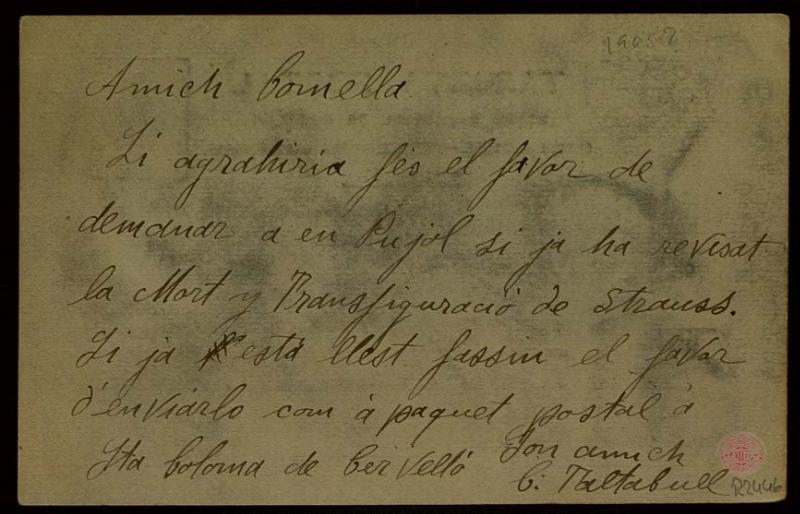 1905?
Amich Comella.
Li agrahiria fés el favor de
demanar a en Pujol si ja ha revisat
la Mort y Transfiguració de Strauss.
Si ja está llest fassin el favor
d'enviarlo com à paquet postal à
Sta Coloma de Cervelló
Son amich
C. Taltabull
R2446